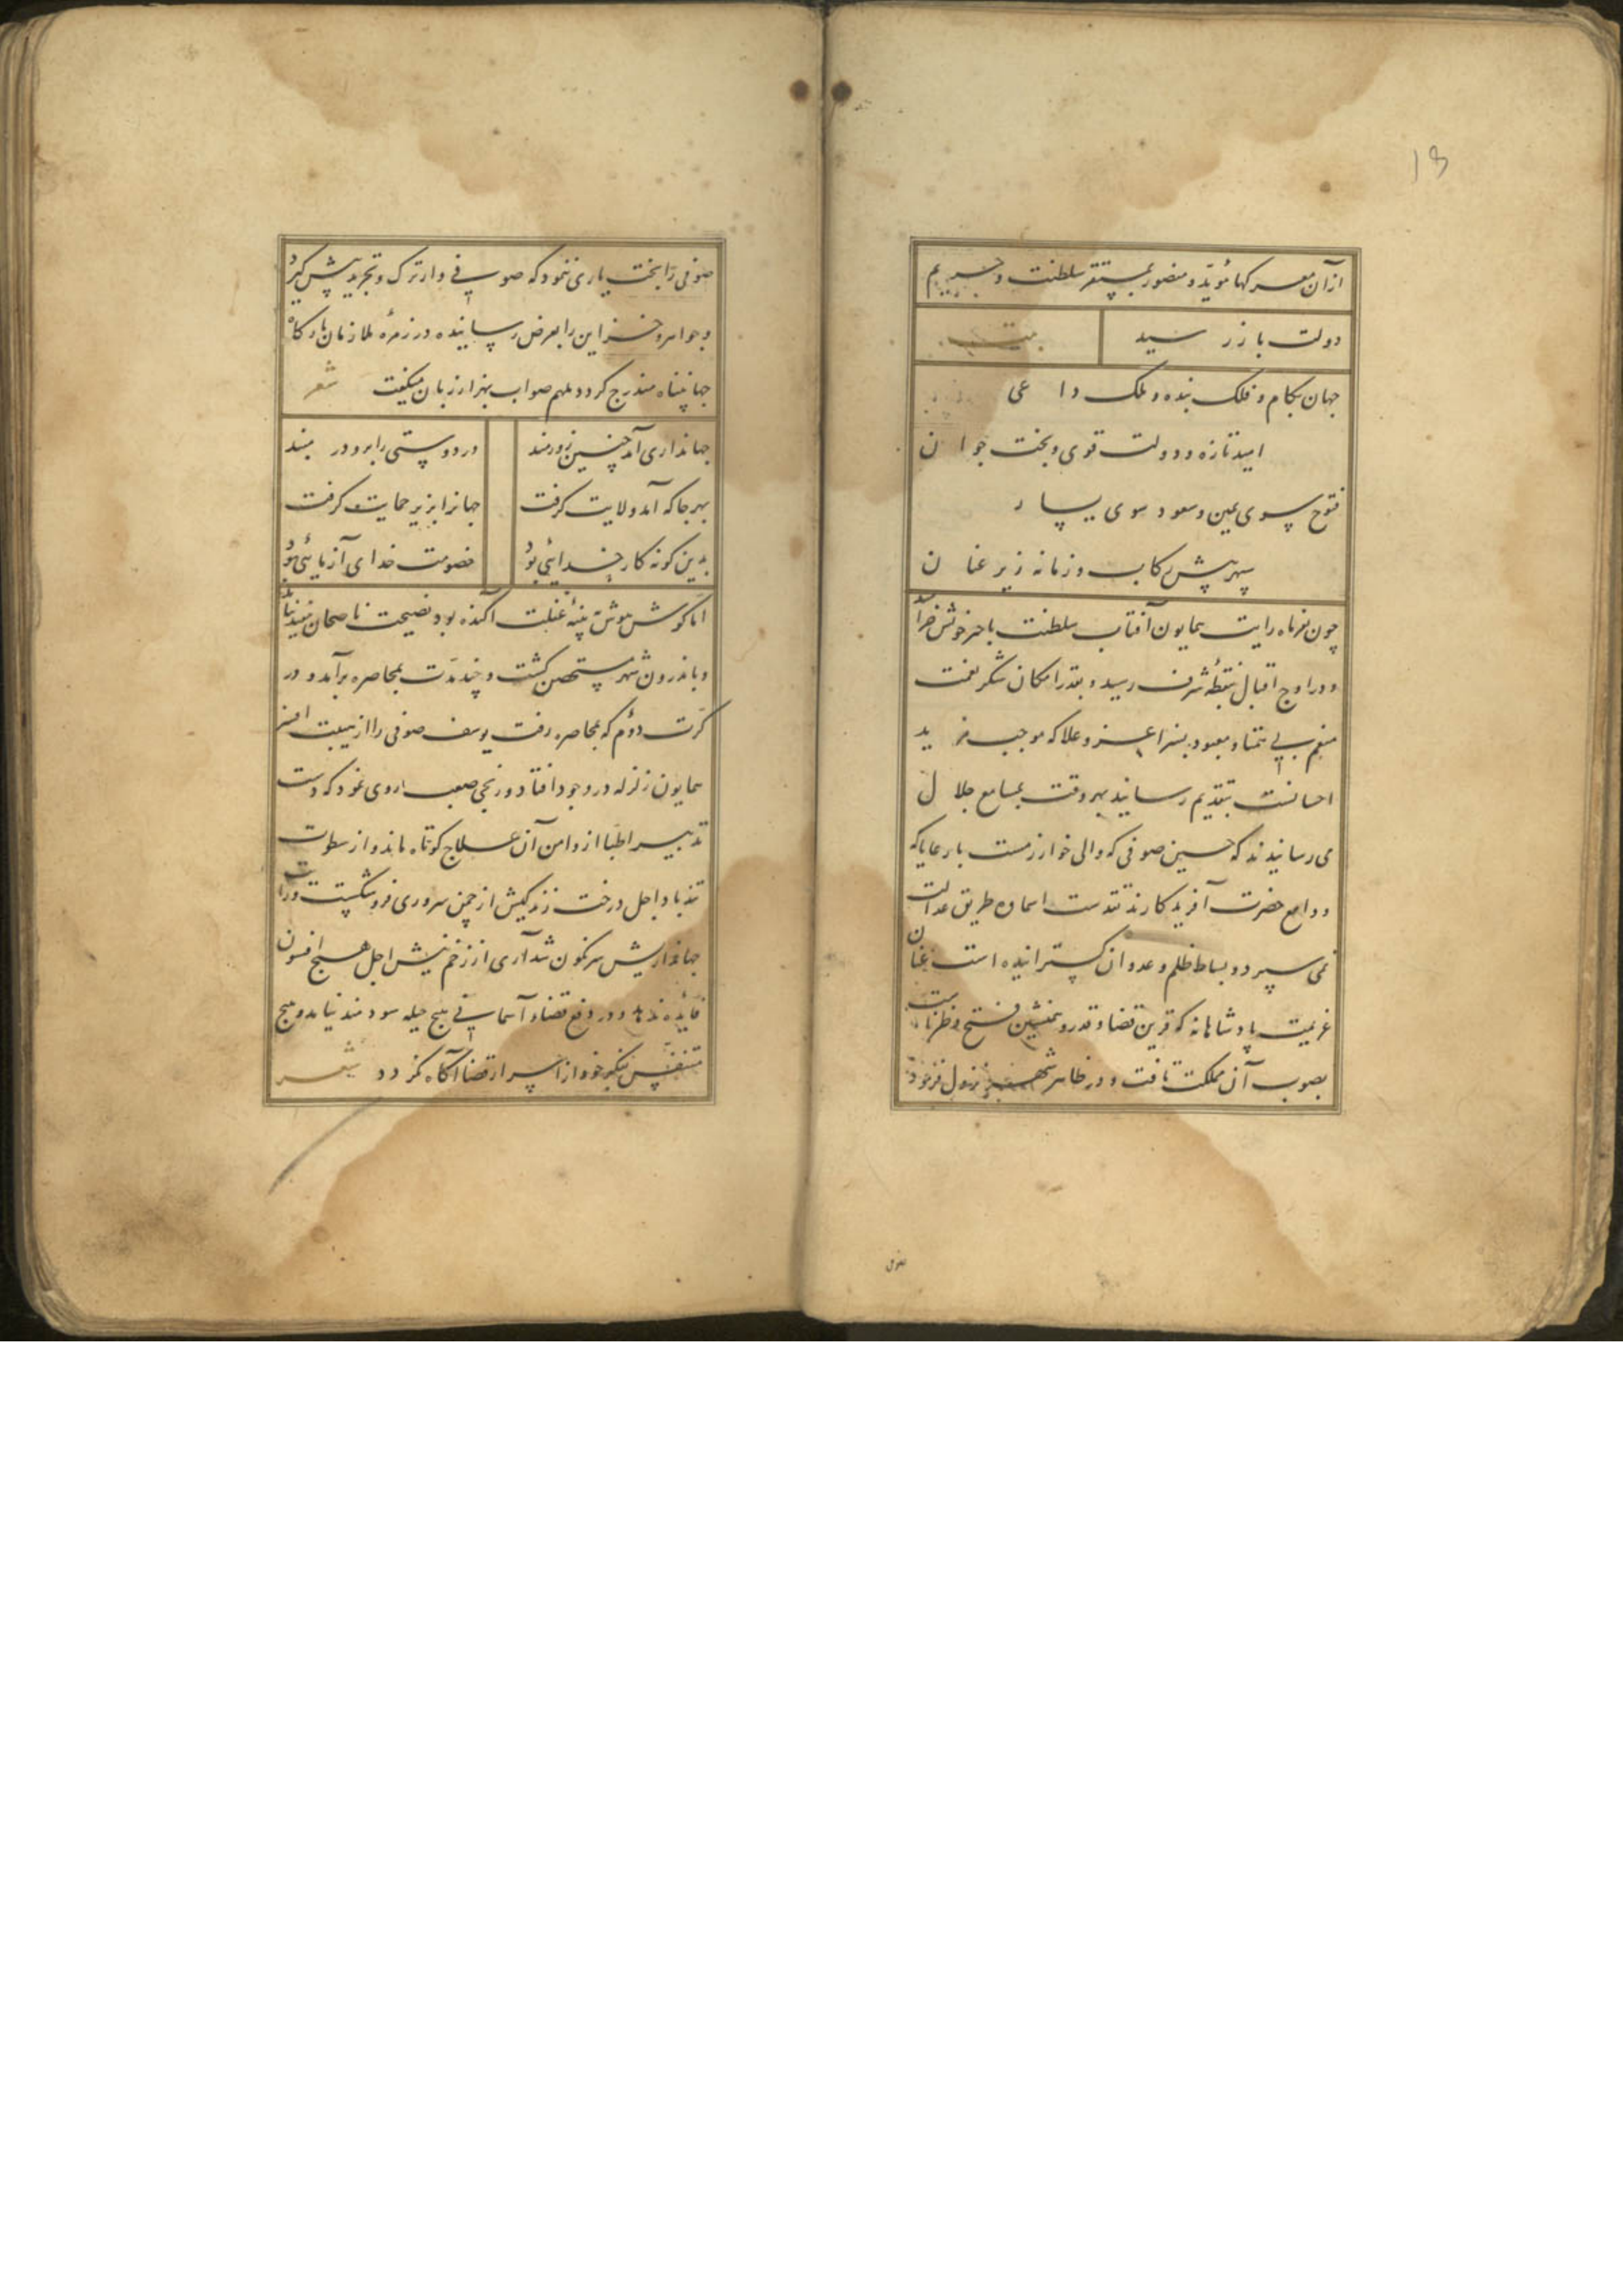 13
از آن معرکها مؤید و منصور بمستقر سلطنت و حریم
دولت باز رسید بیت
جهان بکام و فلک بنده و ملک داعی
امید تازه و دولت قوی و بخت جوان
فتوح سوی یمین و سعود سوی یسار
سپهر پیش رکاب و زمانه زیر عنان
چون بفر ماه رایت همایون آفتاب سلطنت با
و در اوج اقبال بنقطهٔ شرف رسید و بقدر امکان شکر نعمت
منعم بی همتا و معبود بسزا عز و علا که موجب مزید
احسانست بتقدیم رسانید بهر وقت بمسامع جلال
می رسانیدند که حسین صوفی که والی خوارزمست با رعایا که
ودایع حضرت آفریدکارند تقدست اسماه طریق عدالت
نمی سپرد و بساط ظلم و عدوان کسترانیده است عنان
عزیمت پادشاهانه که قرین قضا و قدر و همنشین فتح و ظفرست
بصوب آن مملکت تافت و در ظاهر شهر نزول فرمود
صوفی را بخت یاری ننمود که صوفی وار ترک و تجرید پیش کیرد
و جواهر و خزاین را بعرض رسانیده در زمرهٔ ملازمان بارکاه
جهانپناه مندرج کردد ملهم صواب بهزار زبان میکفت شعر
جهانداری آمد چنین زورمند در دوستی را برو در مبند
بهر جا که آمد ولایت کرفت جهانرا بزیر حمایت کرفت
بدین کونه کار خدایی بود خصومت خدای آزمایئی بود
اما کوش هوش بپنبهٔ غفلت اکنده بود نصیحت ناصحان مفید نیامد
و باندرون شهر متحصن کشت و چند مدت بمحاصره برآمد و در
کرت دوم که بمحاصره رفت یوسف صوفی را از هیبت
همایون زلزله در وجود افتاد و رنجی صعب روی نمود که دست
تدبیر اطبا از دامن آن علاج کوتاه ماند و از سطوت
تندباد اجل درخت زندکیش از چمن سروری فرو شکست و رایت
جهانداریش سرنکون شد آری از زخم نیش اجل هیچ افسون
فایده ندهد و در دفع قضاء آسمانی هیچ حیله سودمند نیاید و هیچ
متنفس بفکر خود از اسرار قضا آکاه نکردد شعر